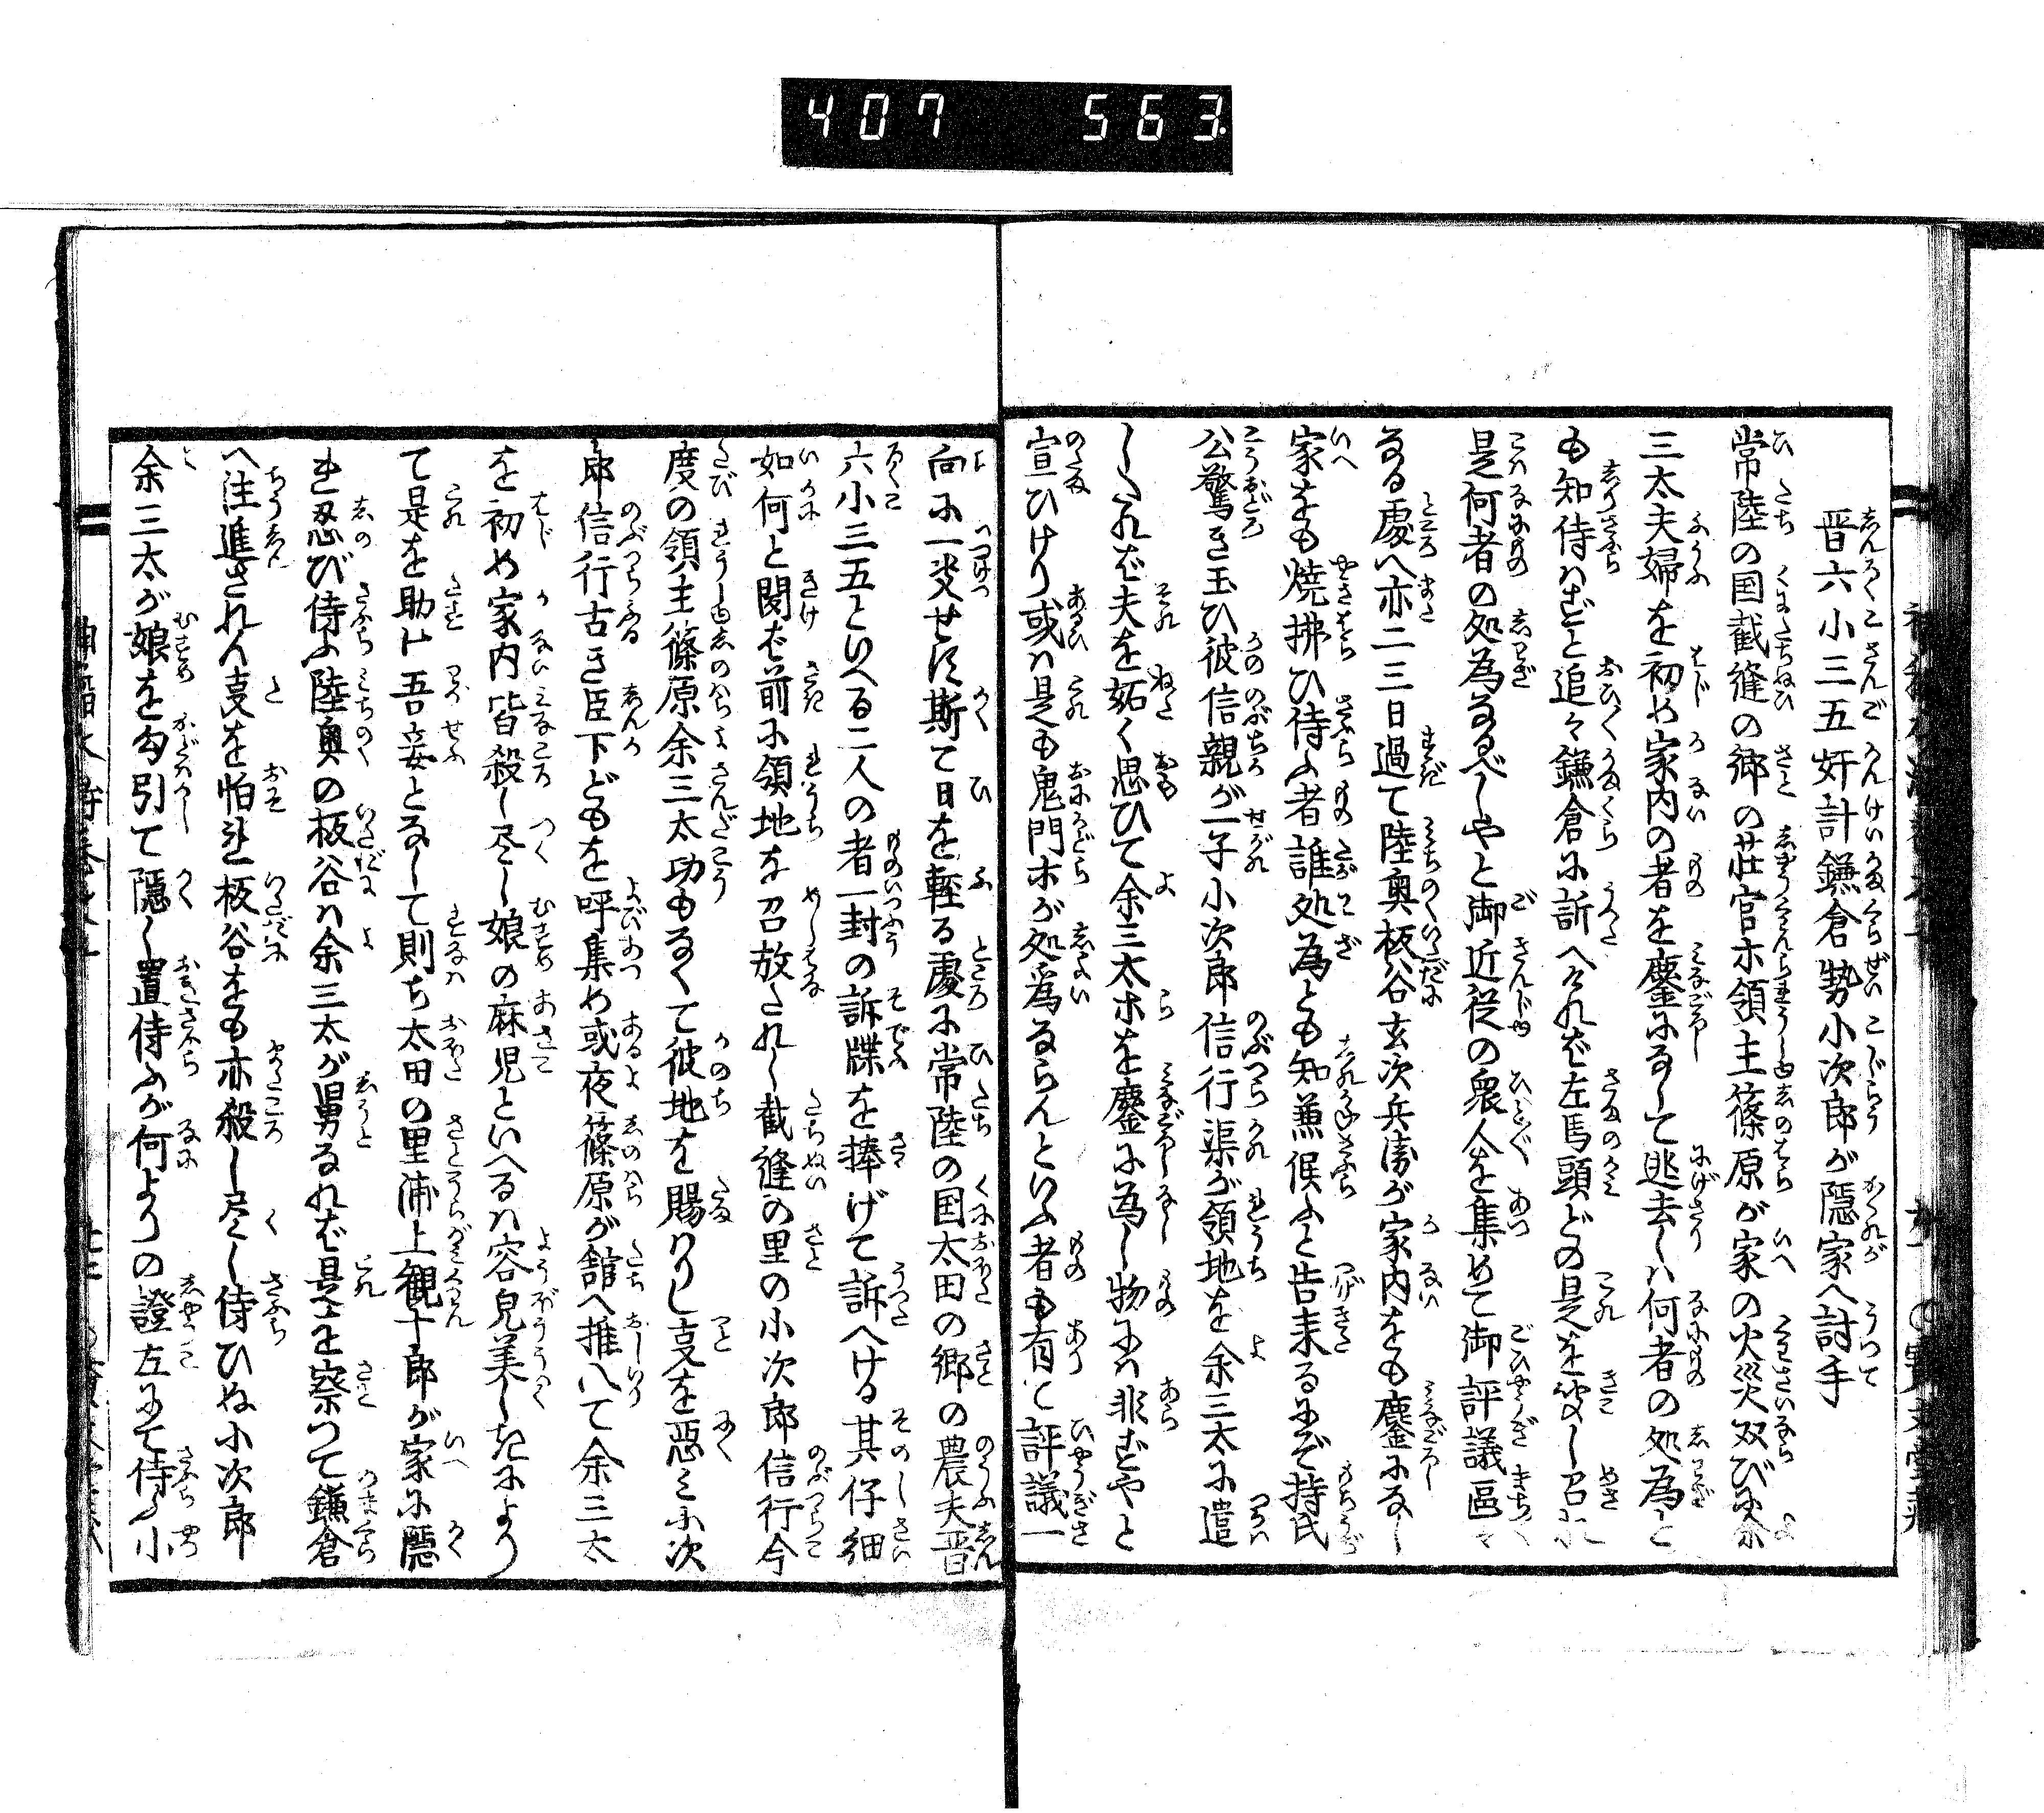 407 563
晋六小三五奸計鎌倉勢小次郎が隠家へ討手
常陸の国截縫の郷の荘官ホ領主篠原が家の火災双びに余
三太夫婦を初め家内の者を鏖になして逃去しハ何者の処為と
も知侍ハずと追々鎌倉に訴へけれバ左馬頭どの是を聞し召れ
是何者の処為なるべしやと御近従の衆人を集めて御評議區々
なる處へ亦二三日過て陸奥板谷玄次兵衛が家内をも鏖になし
家をも焼拂ひ侍ふ者誰処為とも知兼候ふと告来るにぞ持氏
公驚き玉ひ彼信親が一子小次郎信行渠が領地を余三太に遣
したれバ夫を妬く思ひて余三太ホを鏖に為し物にハ非ずやと
宣ひけり或ハ是も鬼門ホが処為ならんといふ者も有て評議一
向に一决せず斯て日を軽る處に常陸の国太田の郷の農夫晋
六小三五といへる二人の者一封の訴牒を捧げて訴へける其仔細
如何と聞バ前に領地を召放たれし截縫の里の小次郎信行今
度の領主篠原余三太功もなくて彼地を賜ハりし叓を惡ミ小次
郎信行古き臣下どもを呼集め或夜篠原が舘へ推入て余三太
を初め家内皆殺し尽し娘の麻児といへるハ容皃美しきにより
て是を助け吾妾となして則ち太田の里浦上観十郎が家に隠
れ忍び侍ふ陸奥の板谷ハ余三太が舅なれバ是を察つて鎌倉
へ注進されん叓を怕れ板谷をも亦殺し尽し侍ひぬ小次郎
余三太が娘を勾引て隠し置侍ふが何よりの證左にて侍ふ小